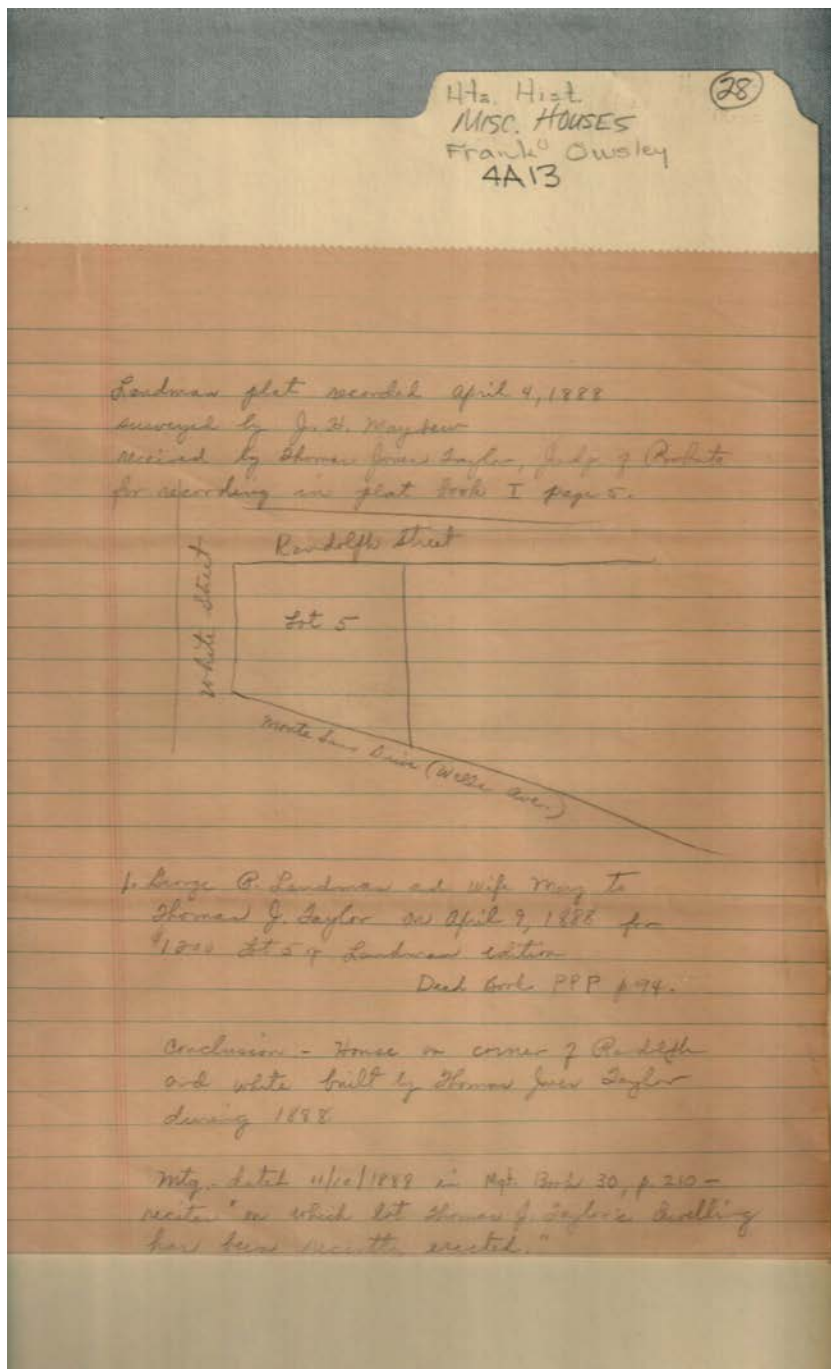 Hts. Hist.
28
MISC. HOUSES
Frank Owsley
4A13
Landman plat recorded April 4, 1888
surveyed by J. H. Mayhew
received by Thomas Jones Taylor, Judge of Probate
for recording in plat book I page 5.
Randolph Street
White Street
Lot 5
Monte Sano Drive (Wells Ave.)
1. George P. Landman and wife May to
Thomas J. Taylor on April 9, 1888 for
Lot 5 of Landman edition
Deed Book PPP p 94.
Conclusion - House on corner of Randolph
and white built by Thomas Jones Taylor
during 1888
Mtg. dated 11/10/1888 in Mgt. Book 30, p. 210 -
recites "on which lot Thomas J. Taylor's dwelling
has been recently erected."